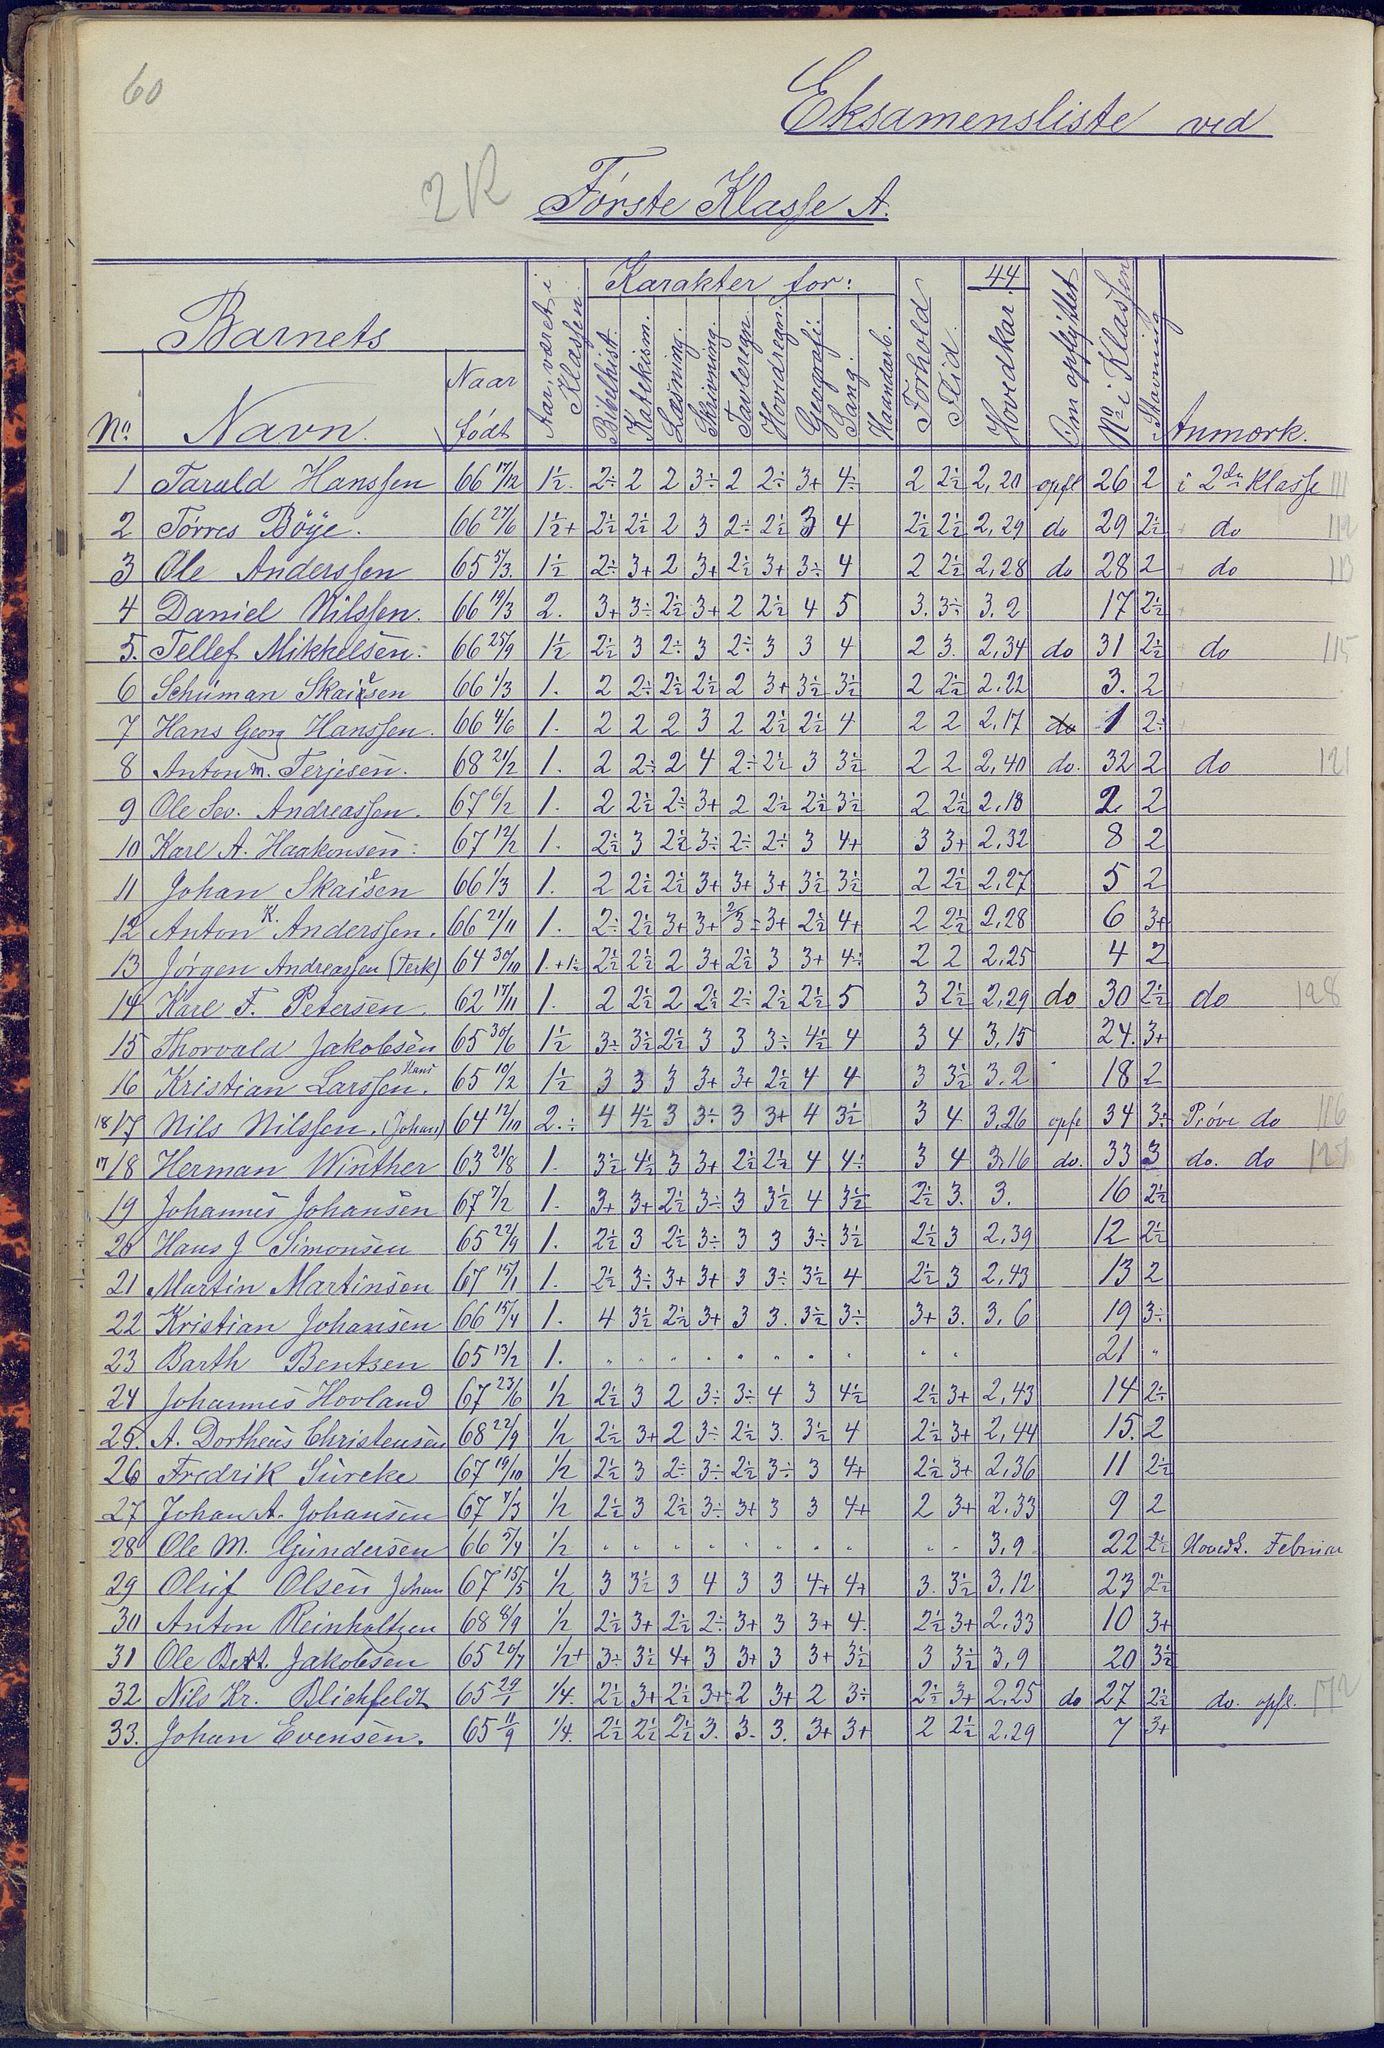 60
Eksamensliste ved
2 K
Første Klasse A.
Barnets
No. Navn. Naar født Aar været i Klassen. Karakter for: Bibelhist. Katekism. Læsning. Skrivning. Tavleregn. Hovedregn. Geografi. Sang. Haandarb. Forhold Flid. 44 Hovedkar. Om opflyttet No. i Klassen Stavning Anmærk.
1 Tarald Hanssen 66 17/12 1½. 2÷ 2 2 3÷ 2 2÷ 3+ 4÷ 2 2½ 2,20 opfl 26 2 i 2den Klasse 111
2 Tørres Böÿe. 66 27/6 1½+ 2½ 2½ 2 3 2÷ 2½ 3 4 2½ 2½ 2,29 do 29 2½ do 112
3 Ole Anderssen 65 5/3. 1½ 2÷ 3+ 2 3+ 2½ 3+ 3÷ 4 2 2½ 2,28 do 28 2 do 113
4 Daniel Nilssen. 66 19/3 2. 3+ 3÷ 2½ 3+ 2 2½ 4 5 3. 3÷ 3.2 17 2½
5. Tellef Mikkelsen. 66 25/9 1½ 2½ 3 2÷ 3 2÷ 3 3 4 2 3. 2,34 do 31 2½ do 115
6 Schuman Skaisen 66 1/3 1. 2 2÷ 2½ 2½ 2 3+ 3½ 3½ 2 2½ 2,22 3. 2
7 Hans Georg Hanssen. 66 4/6 1. 2 2 2 3 2 2½ 2½ 4 2 2 2,17 do 1 2÷
8 Anton M. Terjesen. 68 21/2 1. 2 2÷ 2 4 2÷ 2½ 3 3½ 2 2 2,40 do. 32 2 do 121
9 Ole Sev. Andreassen. 67 6/2 1. 2 2½ 2÷ 3+ 2 2½ 2½ 3½ 2 2½ 2,18 2 2
10 Karl A. Haakonsen. 67 12/2 1. 2½ 3 2½ 3÷ 2÷ 2÷ 3 4+ 3 3+ 2,32 8 2
11 Johan Skaisen 66 1/3 1. 2 2½ 2½ 3+ 3+ 3+ 3½ 3½ 2 2½ 2,27 5 2
12 Anton K. Anderssen. 66 21/11 1. 2÷ 2½ 3+ 3+ 2/3÷ 3+ 2½ 4+ 2 2½ 2,28 6 3+
13 Jørgen Andreassen (Terk) 64 30/10 1.+½ 2½ 2½ 2 3+ 2½ 3 3+ 4÷ 2 2 2,25 4 2
14 Karl F. Petersen. 62 17/11 1. 2 2½ 2 2½ 2÷ 2½ 2½ 5 3 2½ 2,29 do 30 2½ do 128
15 Thorvald Jakobsen 65 30/6 1½ 3÷ 3½ 2½ 3 3 3÷ 4½ 4 3 4 3,15 24. 3+
16 Kristian Hans Larssen. 65 10/2 1½ 3 3 3 3+ 3+ 2½ 4 4 3 3½ 3.2 18 2
18 17 Nils Nilssen. (Johan) 64 12/10 2.÷ 4 4½ 3 3÷ 3 3+ 4 3½ 3 4 3,26 opfl 34 3÷ Prøve do 116
17 18 Herman Winther 63 21/8 1. 3½ 4½ 3 3+ 2½ 2½ 4 4÷ 3 4 3,16 do. 33 3 do. do
19 Johannes Johansen 67 7/2 1. 3+ 3+ 2½ 3÷ 3 3½ 4 3½ 2½ 3. 3. 16 2½
20 Hans J Simonsen 65 22/9 1. 2½ 3 2½ 3÷ 3 3 3÷ 3½ 2½ 3 2,39 12 2½
21 Martin Martinsen 67 15/1 1. 2½ 3÷ 3+ 3+ 3 3÷ 3½ 4 2½ 3 2,43 13 2
22 Kristian Johansen 66 15/4 1. 4 3½ 2½ 3+ 3 3. 3½ 3÷ 3+ 3. 3,6 19 3÷
23 Barth Bentsen 65 13/2 1. " " " " " " " " " " 21 "
24 Johannes Hovland 67 23/6 ½ 2½ 3 2 3÷ 3÷ 4 3 4½ 2½ 3+ 2,43 14 2÷
25. A. Dortheus Christensen 68 22/9 ½ 2½ 3+ 2 3÷ 2½ 3. 3½ 4 2½ 3+ 2,44 15. 2
26 Fredrik Sürcke 67 19/10 ½ 2½ 3 2÷ 3÷ 2½ 3÷ 3 4+ 2½ 3+ 2,36 11 2½
27 Johan A. Johansen 67 7/3 ½ 2½ 3 2½ 3÷ 3+ 3 3 4+ 2 3+ 2,33 9 2
28 Ole M. Gundersen 66 5/4 ½ " " " " " " " " " " 3,9 22 2½ Hovedk. Februar
29 Oluf Olsen Johan 67 15/5 ½ 3 3½ 3 4 3 3 4+ 4+ 3. 3½ 3,12 23 2½
30 Anton Reinholtzen 68 8/9 ½ 2½ 3+ 2½ 2÷ 3+ 3 3+ 4. 2½ 3+ 2,33 10 3+
31 Ole Bert. Jakobsen 65 20/7 ½+ 3÷ 3½ 4+ 3 3+ 3 3+ 3½ 3 3½ 3,9 20 3½
32 Nils Kr. Blichfeldt 65 29/1 ¼. 2½ 3+ 2½ 3+ 2 3+ 2 3÷ 2½ 3+ 2,25 do 27 2½ do. opfl. 172
33. Johan Evensen. 65 11/9 ¼. 2½ 2½ 2½ 3. 3. 3. 3+ 3+ 2 2½ 2,29 7 3+